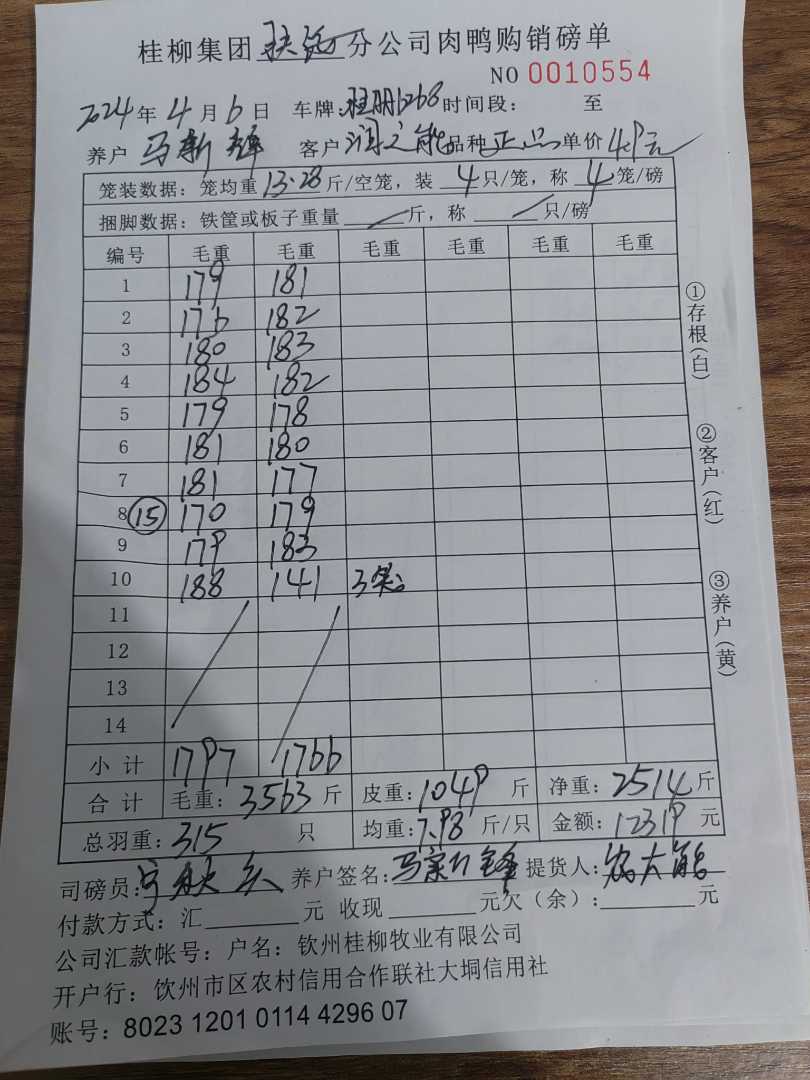 桂柳集团 分公司肉鸭购销磅单
NO 0010554
2024年4月6日 车牌: 6268 时间段: 至
养户 马新 客户 能 品种 正品 单价 4.9元
笼装数据：笼均重 13.28 斤/空笼，装 4 只/笼，称 4 笼/磅
捆脚数据：铁筐或板子重量 / 斤，称 / 只/磅
编号 毛重 毛重 毛重 毛重 毛重 毛重
1 179 181
2 176 182
3 180 183
4 184 182
5 179 178
6 181 180
7 181 177
8 ⑮ 170 179
9 179 183
10 188 141 3笼
11
12
13
14
小计 1797 1766
合计 毛重：3563 斤 皮重：1049 斤 净重：2514 斤
总羽重：315 只 均重：7.98 斤/只 金额：12319 元
司磅员： 养户签名：马新 提货人： 大能
付款方式：汇 元 收现 元欠（余）： 元
公司汇款帐号：户名：钦州桂柳牧业有限公司
开户行：钦州市区农村信用合作联社大垌信用社
账号：8023 1201 0114 4296 07
①存根（白）
②客户（红）
③养户（黄）